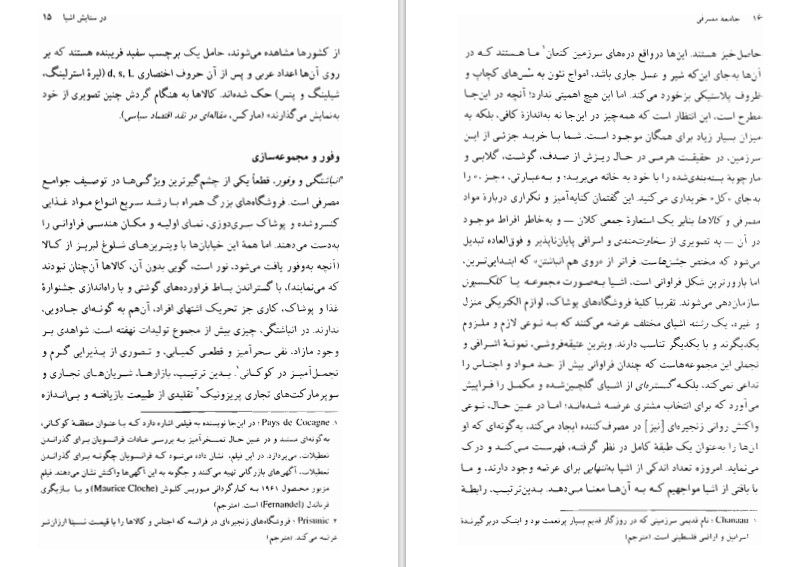 در ستایش اشیا ۱۵
از کشورها مشاهده می‌شوند، حامل یک برچسب سفید فریبنده هستند که بر
روی آن‌ها اعداد عربی و پس از آن حروف اختصاری d, s, L (لیرهٔ استرلینگ،
شیلینگ و پنس) حک شده‌اند. کالاها به هنگام گردش چنین تصویری از خود
به‌نمایش می‌گذارند» (مارکس، مقاله‌ای در نقد اقتصاد سیاسی).
وفور و مجموعه‌سازی
انباشتگی و وفور، قطعاً یکی از چشم‌گیرترین ویژگی‌ها در توصیف جوامع
مصرفی است. فروشگاه‌های بزرگ همراه با رشد سریع انواع مواد غذایی
کنسروشده و پوشاک سری‌دوزی، نمای اولیه و مکان هندسی فراوانی را
به‌دست می‌دهند. اما همهٔ این خیابان‌ها با ویترین‌های شلوغ لبریز از کالا
(آنچه به‌وفور یافت می‌شود، نور است، گویی بدون آن، کالاها آن‌چنان نبودند
که می‌نمایند)، با گستراندن بساط فراورده‌های گوشتی و با راه‌اندازی جشنوارهٔ
غذا و پوشاک، کاری جز تحریک اشتهای افراد، آن‌هم به گونه‌ای جادویی،
ندارند. در انباشتگی، چیزی بیش از مجموع تولیدات نهفته است: شواهدی بر
وجود مازاد، نفی سحرآمیز و قطعی کمیابی، و تصوری از پذیرایی گرم و
تجمل‌آمیز در کوکانی۱. بدین ترتیب، بازارها، شریان‌های تجاری و
سوپرمارکت‌های تجاری پریزونیک۲ تقلیدی از طبیعت بازیافته و بی‌اندازه
۱. Pays de Cocagne؛ در این‌جا نویسنده به فیلمی اشاره دارد کـه بـا عنوان منطقهٔ کوکانی،
به‌گونه‌ای مستند و در عین حال تمسخرآمیز بـه بررسی عـادات فرانسویان برای گذراندن
تعطیلات، می‌پردازد. در این فیلم، نشان داده می‌شود کـه فرانسویان چگونه برای گذراندن
تعطیلات، آگهی‌های بازرگانی تهیه می‌کنند و چگونه به این آگهی‌ها واکنش نشان می‌دهند. فیلم
مزبور محصول ۱۹۶۱ بـه کـارگردانی مـوریس کلوش (Maurice Cloche) و بـا بـازیگری
فرناندل (Fernandel) است. (مترجم)
۲. Prisunic؛ فروشگاه‌های زنجیره‌ای در فرانسه که اجناس و کالاها را با قیمت نسبتاً ارزان‌تر
عرضه می‌کند. (مترجم)
۱۶ جامعهٔ مصرفی
حاصل‌خیز هستند. این‌ها درواقع دره‌های سرزمین کنعان۱ ما هستند کـه در
آن‌ها به‌جای این‌که شیر و عسل جاری باشد، امواج نئون به سُس‌های کچاپ و
ظروف پلاستیکی برخورد می‌کند. اما این هیچ اهمیتی ندارد؛ آنچه در این‌جا
مطرح است، این انتظار است که همه‌چیز در این‌جا نه به‌اندازهٔ کافی، بلکه به
میزان بسیار زیاد برای همگان موجود است. شما بـا خرید جزئی از این
سرزمین، در حقیقت هرمی در حال ریزش از صدف، گوشت، گلابی و
مارچوبهٔ بسته‌بندی‌شده را با خود به خانه می‌برید؛ و به‌عبارتی، «جز»ء را
به‌جای «کل» خریداری می‌کنید. این گفتمان کنایه‌آمیز و تکراری دربارهٔ مواد
مصرفی و کالاها بنابر یک استعارهٔ جمعی کلان — و به‌خاطر افراط موجود
در آن — به تصویری از سخاوت‌مندی و اسرافی پایان‌ناپذیر و فوق‌العاده تبدیل
می‌شود که مختص جشن‌هاست. فراتر از «روی هم انباشتن» که ابتدایی‌ترین،
اما بارورترین شکل فراوانی است، اشیـا به‌صورت مجموعه یا کلکسیون
سازمان‌دهی می‌شوند. تقریباً کلیهٔ فروشگاه‌های پوشاک، لوازم الکتریکی منزل
و غیره، یک رشته اشیای مختلف عرضه می‌کنند که بـه نوعی لازم و ملزوم
یکدیگرند و با یکدیگر تناسب دارند. ویترین عتیقه‌فروشی، نمونهٔ اشرافی و
تجملی این مجموعه‌هاست که چندان فراوانی بیش از حـد مـواد و اجناس را
تداعی نمی‌کند، بلکـه گستره‌ای از اشیای گلچین‌شده و مکمل را فراپیش
می‌آورد که برای انتخاب مشتری عرضه شده‌اند؛ اما در عین حال، نوعی
واکنش روانی زنجیره‌ای [نیز] در مصرف‌کننده ایجاد می‌کند، به‌گونه‌ای که او
آن‌ها را به‌عنوان یک طبقهٔ کامل در نظر گرفته، فهرست می‌کند و درک
می‌نماید. امروزه تعداد اندکی از اشیا به‌تنهایی برای عرضه وجود دارند، و ما
با بافتی از اشیا مواجهیم کـه بـه آن‌هـا معنـا می‌دهـد. بدین‌ترتیب، رابطهٔ
۱. Chanaan؛ نام قدیمی سرزمینی که در روزگار قدیم بسیار پرنعمت بود و اینک دربرگیرندهٔ
اسراییل و اراضی فلسطینی است. (مترجم)